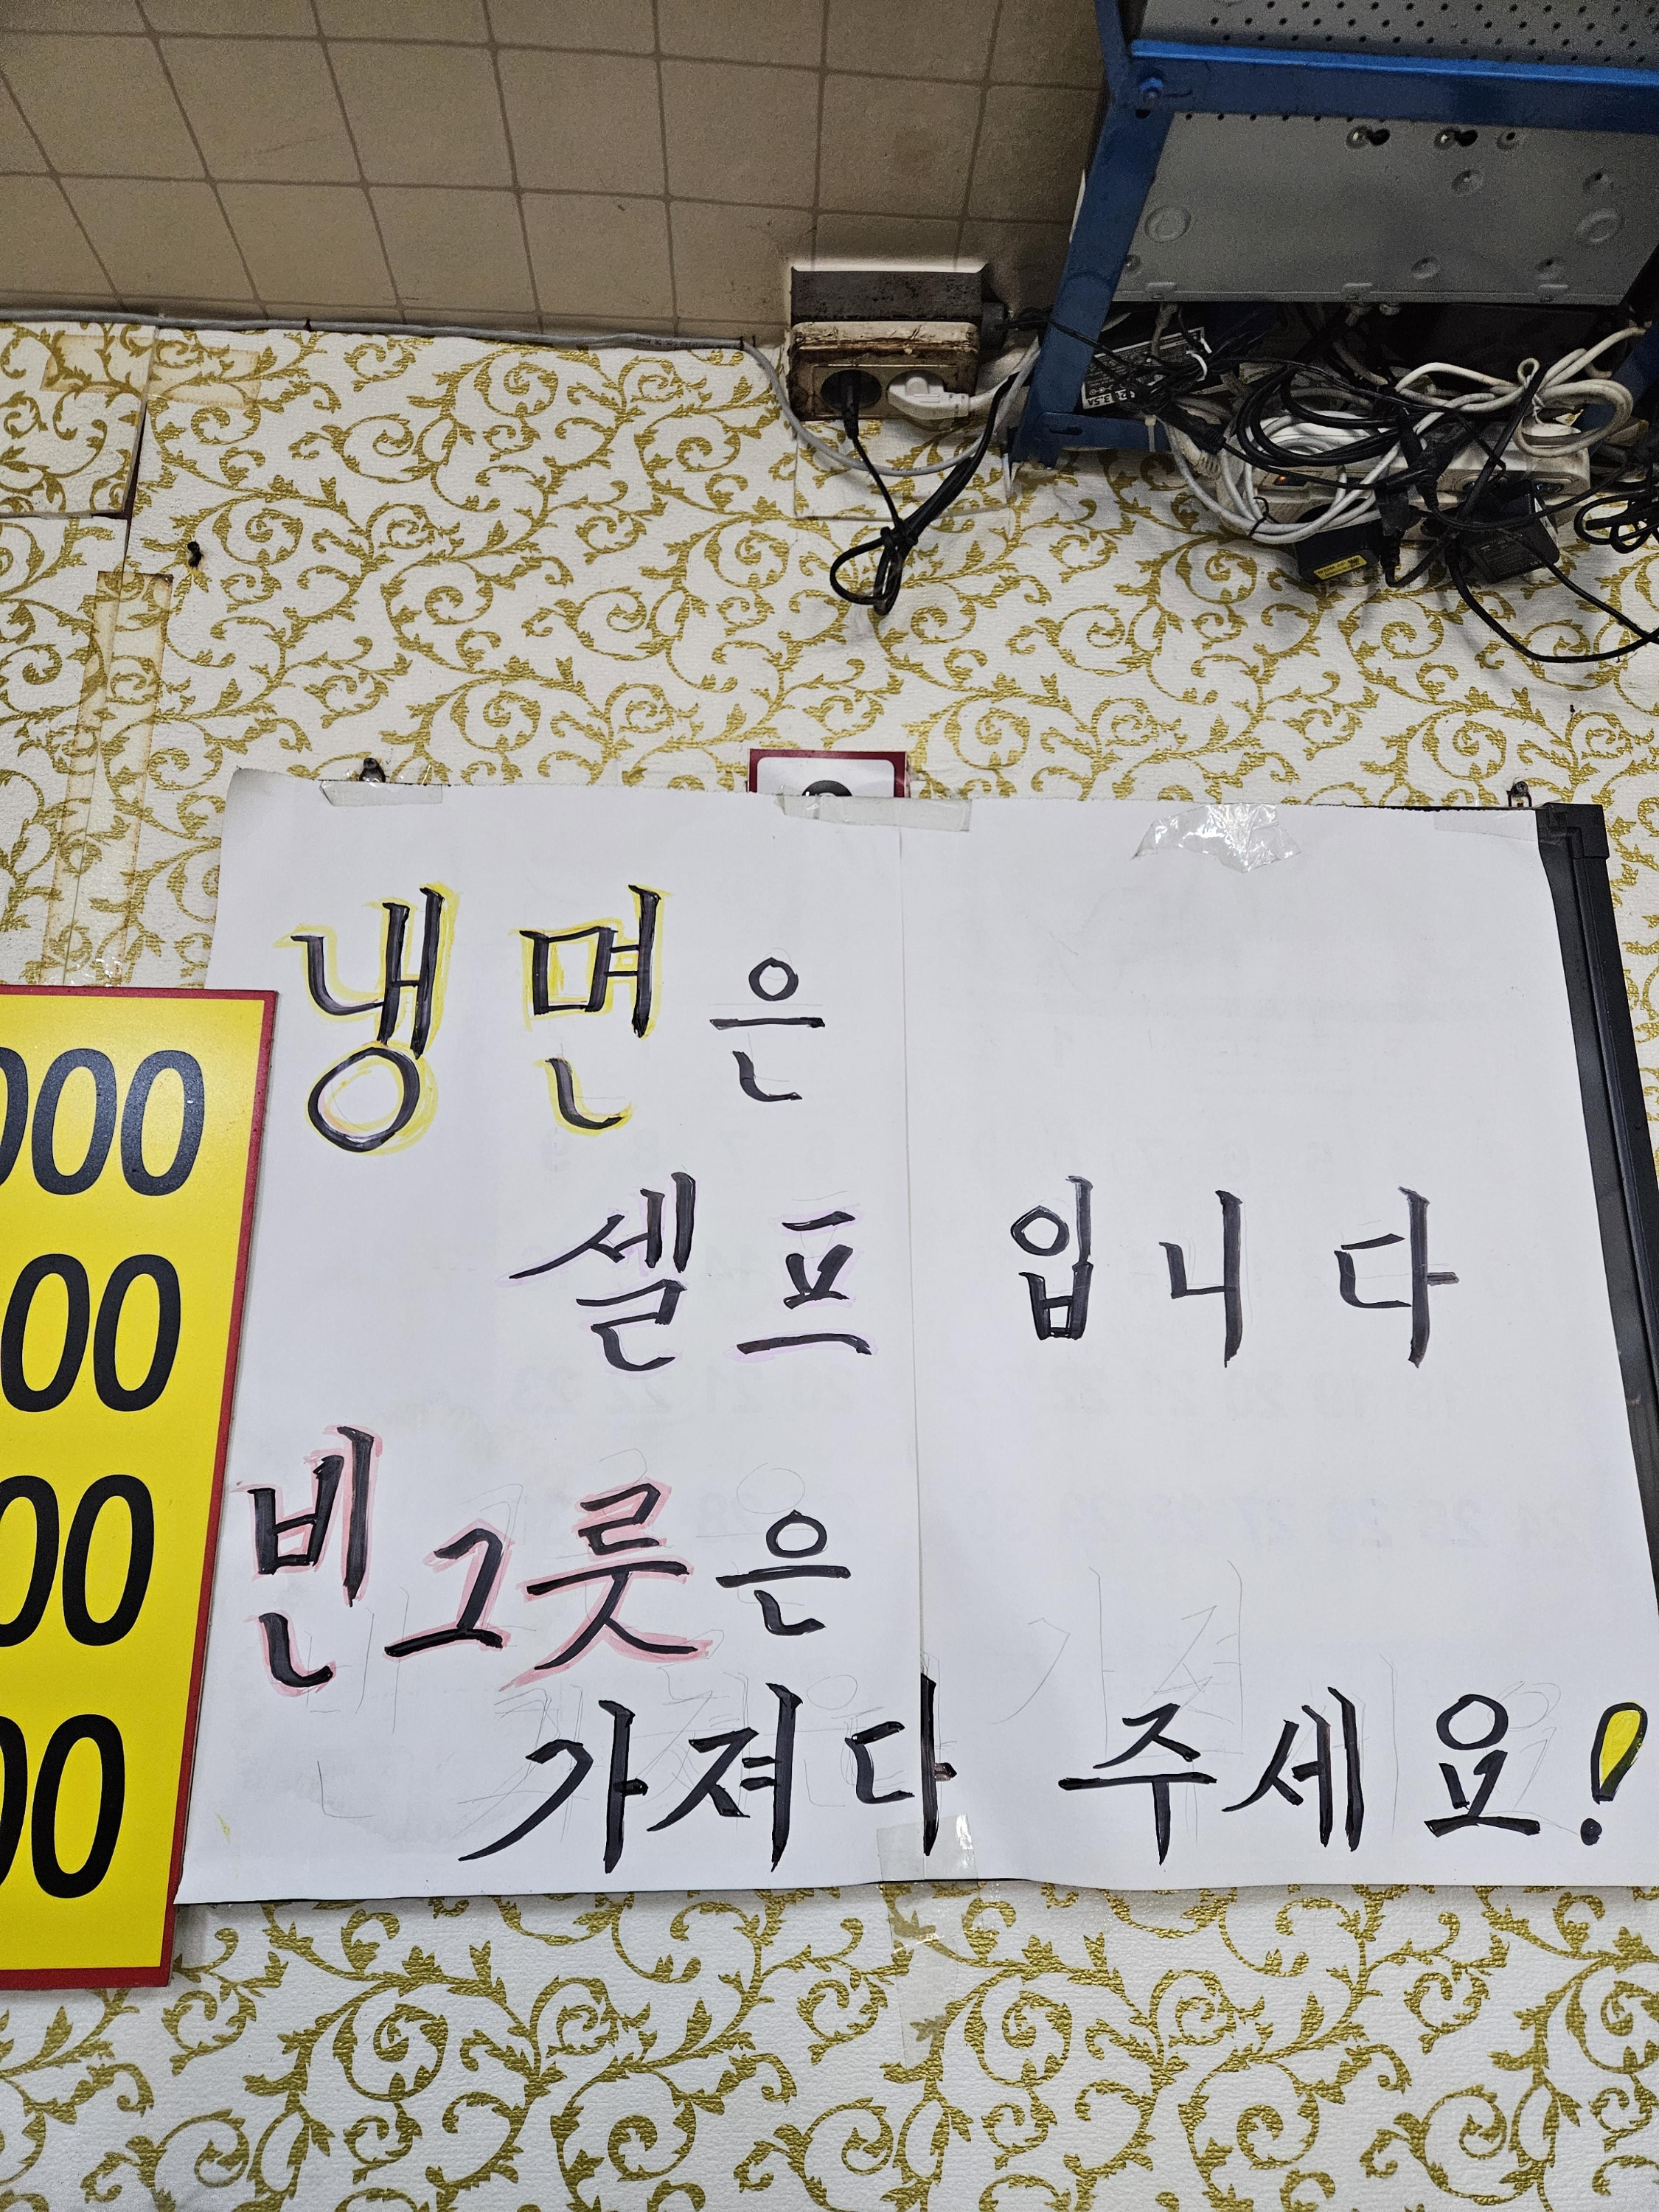 냉면은
셀프입니다
빈그릇은
가져다 주세요!
000
000
000
000